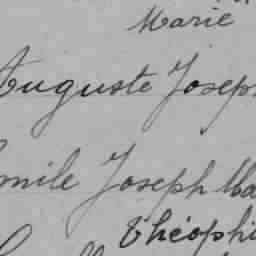 Marie
Auguste Joseph
Emile Joseph Ma
Théophi